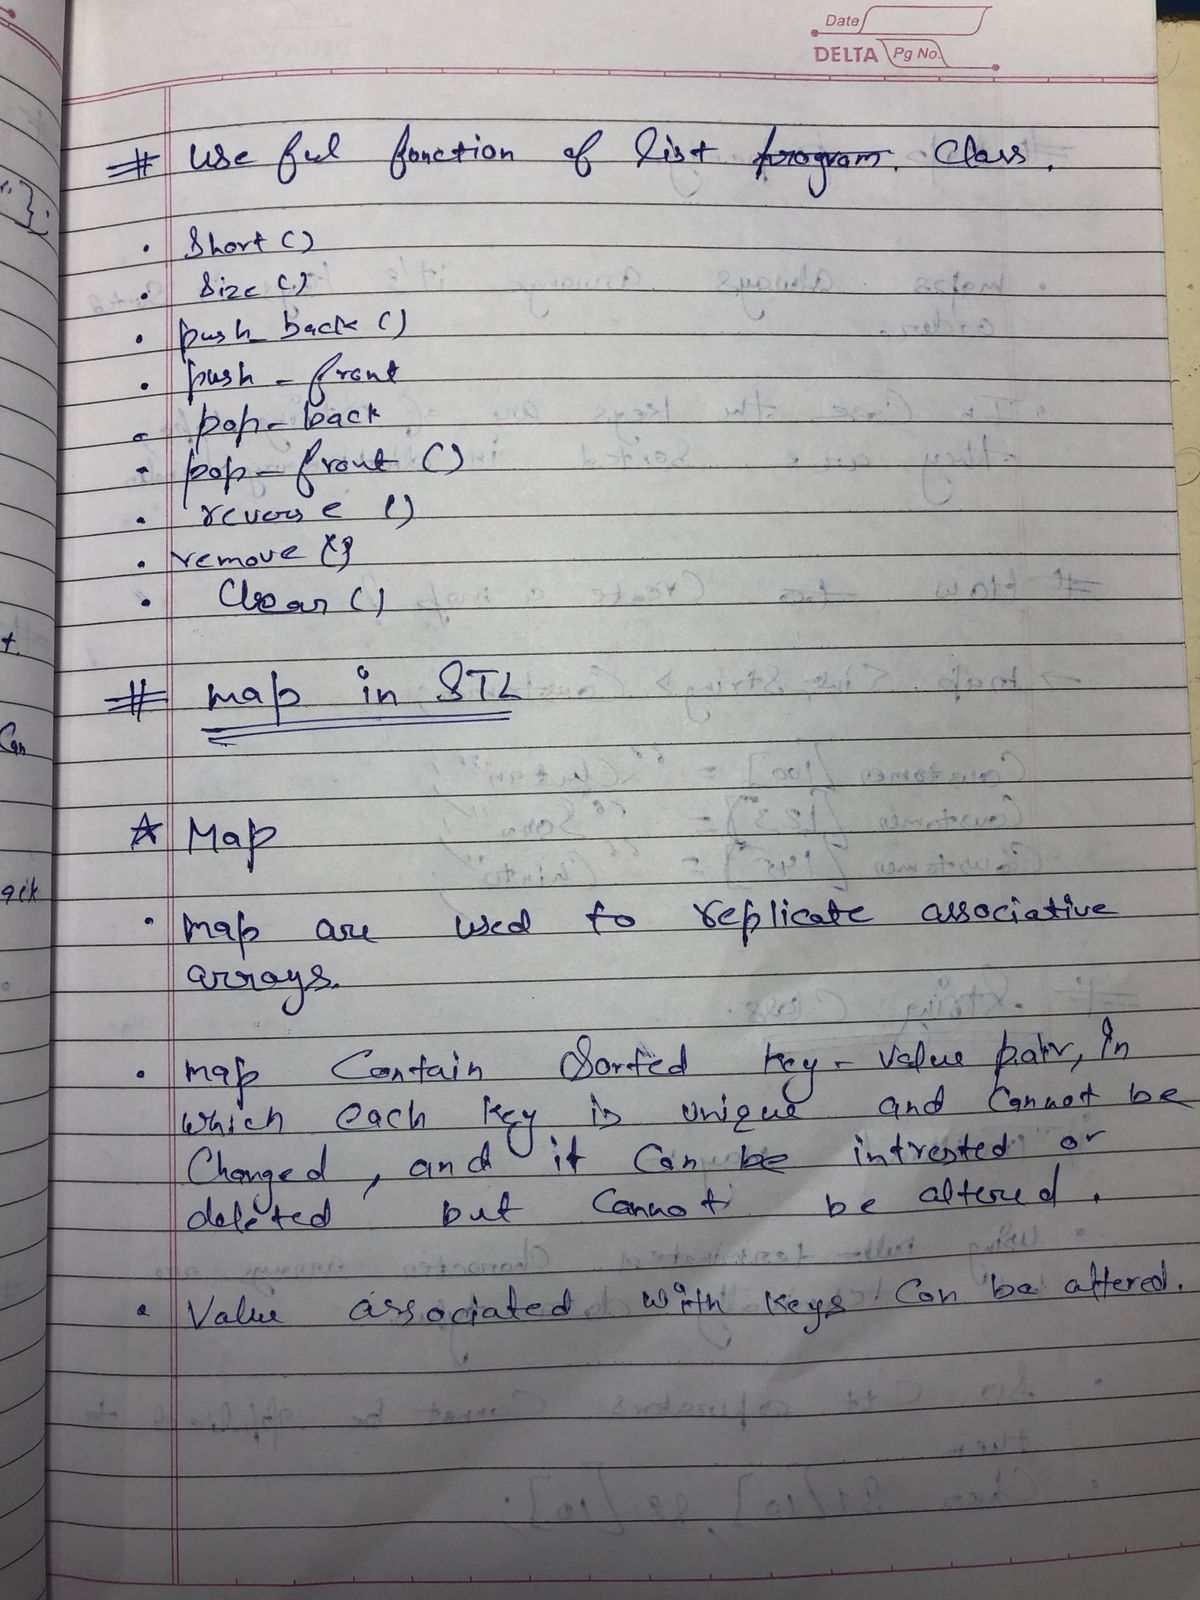 Date
DELTA Pg No.
# Use ful function of list program. Class.
• Short ()
• Size ()
• push_back ()
• push - front
- pop - back
- pop - front ()
• reverse ()
• remove {}
• Clear ()
# map in STL
☆ Map
• map are used to replicate associative
arrays.
• map Contain Sorted key - value pair, in
which each key is unique and Cannot be
Changed, and it Can be intrested or
deleted but Cannot be altered.
• Value associated with keys Can be altered.
t.
Can